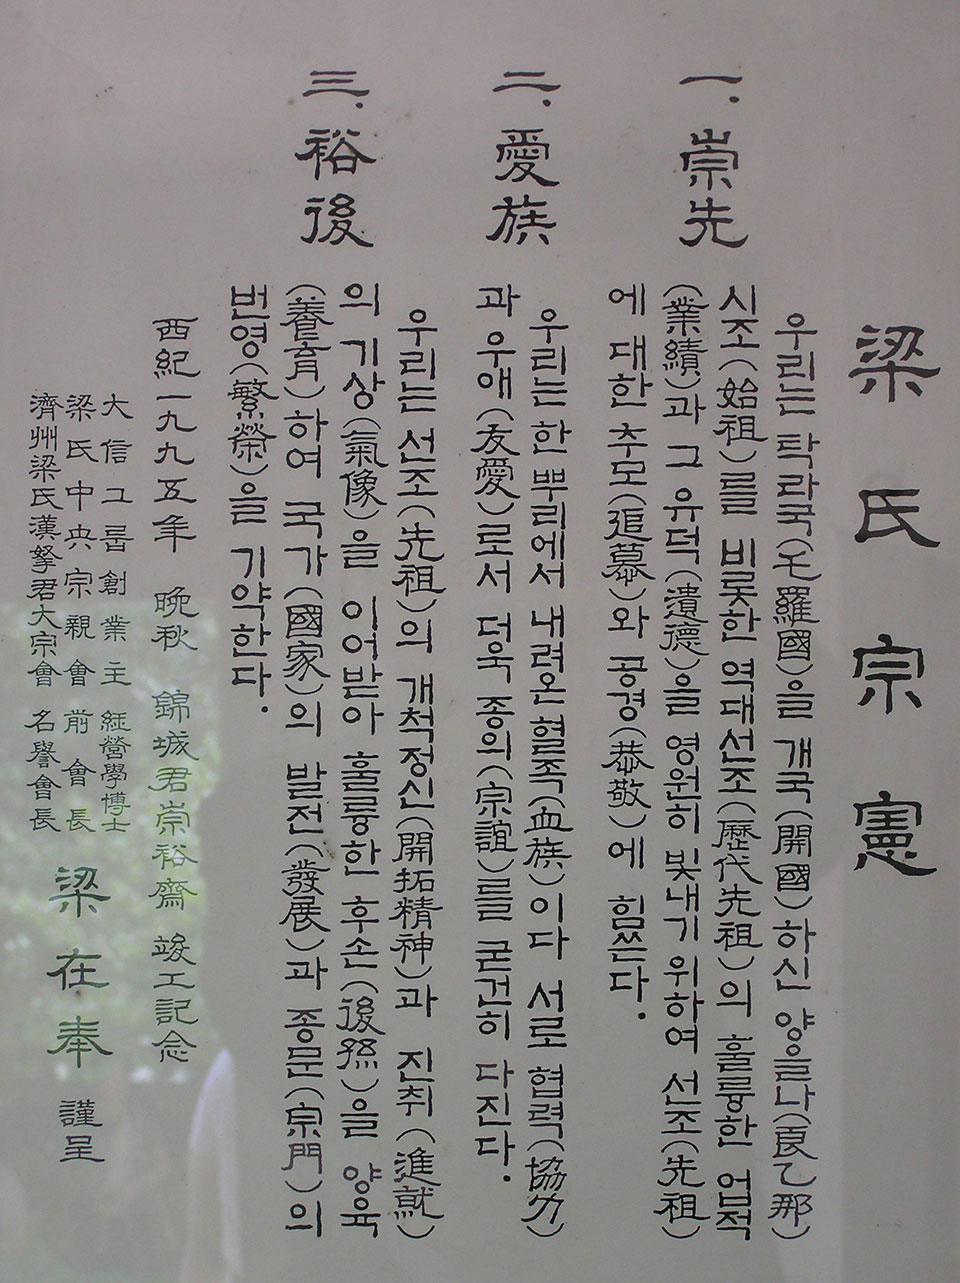 梁氏宗憲
一. 崇先
우리는 탁라국(乇羅國)을 개국(開國)하신 양을나(良乙那)
시조(始祖)를 비롯한 역대선조(歷代先祖)의 훌륭한 업적
(業績)과 그 유덕(遺德)을 영원히 빛내기 위하여 선조(先祖)
에 대한 추모(追慕)와 공경(恭敬)에 힘쓴다.
二. 愛族
우리는 한 뿌리에서 내려온 혈족(血族)이다 서로 협력(協力)
과 우애(友愛)로서 더욱 종의(宗誼)를 굳건히 다진다.
三. 裕後
우리는 선조(先祖)의 개척정신(開拓精神)과 진취(進就)
의 기상(氣像)을 이어받아 훌륭한 후손(後孫)을 양육
(養育)하여 국가(國家)의 발전(發展)과 종문(宗門)의
번영(繁榮)을 기약한다.
西紀一九九五年 晩秋 錦城君崇裕齋 竣工記念
大信그룹創業主 經營學博士
梁氏中央宗親會 前會長
濟州梁氏漢拏君大宗會 名譽會長
梁在奉 謹呈